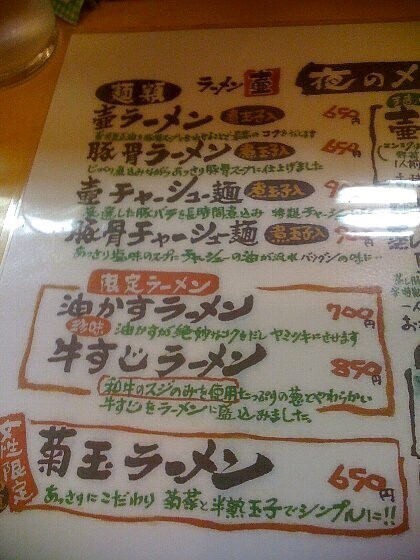 麺類 ラーメン 壷 夜のメ
壷ラーメン 煮玉子入 650円
豚骨ラーメン 煮玉子入 650円
じっくり煮込みながらあっさり豚骨スープに仕上げました
壷チャーシュー麺 煮玉子入
厳選した豚バラを長時間煮込み 特製チャーシュー
豚骨チャーシュー麺 煮玉子入
あっさり塩味のスープ チャーシューの油が
限定ラーメン
油かすラーメン 700円
珍味 油かすが絶妙なコクをだしヤミツキにさせます
牛すじラーメン 850円
和牛のスジのみを使用 たっぷりの葱とやわらかい
牛すじをラーメンに盛込みました。
女性限定
菊玉ラーメン 650円
あっさりにこだわり 菊菜と半熟玉子でシンプルに!!